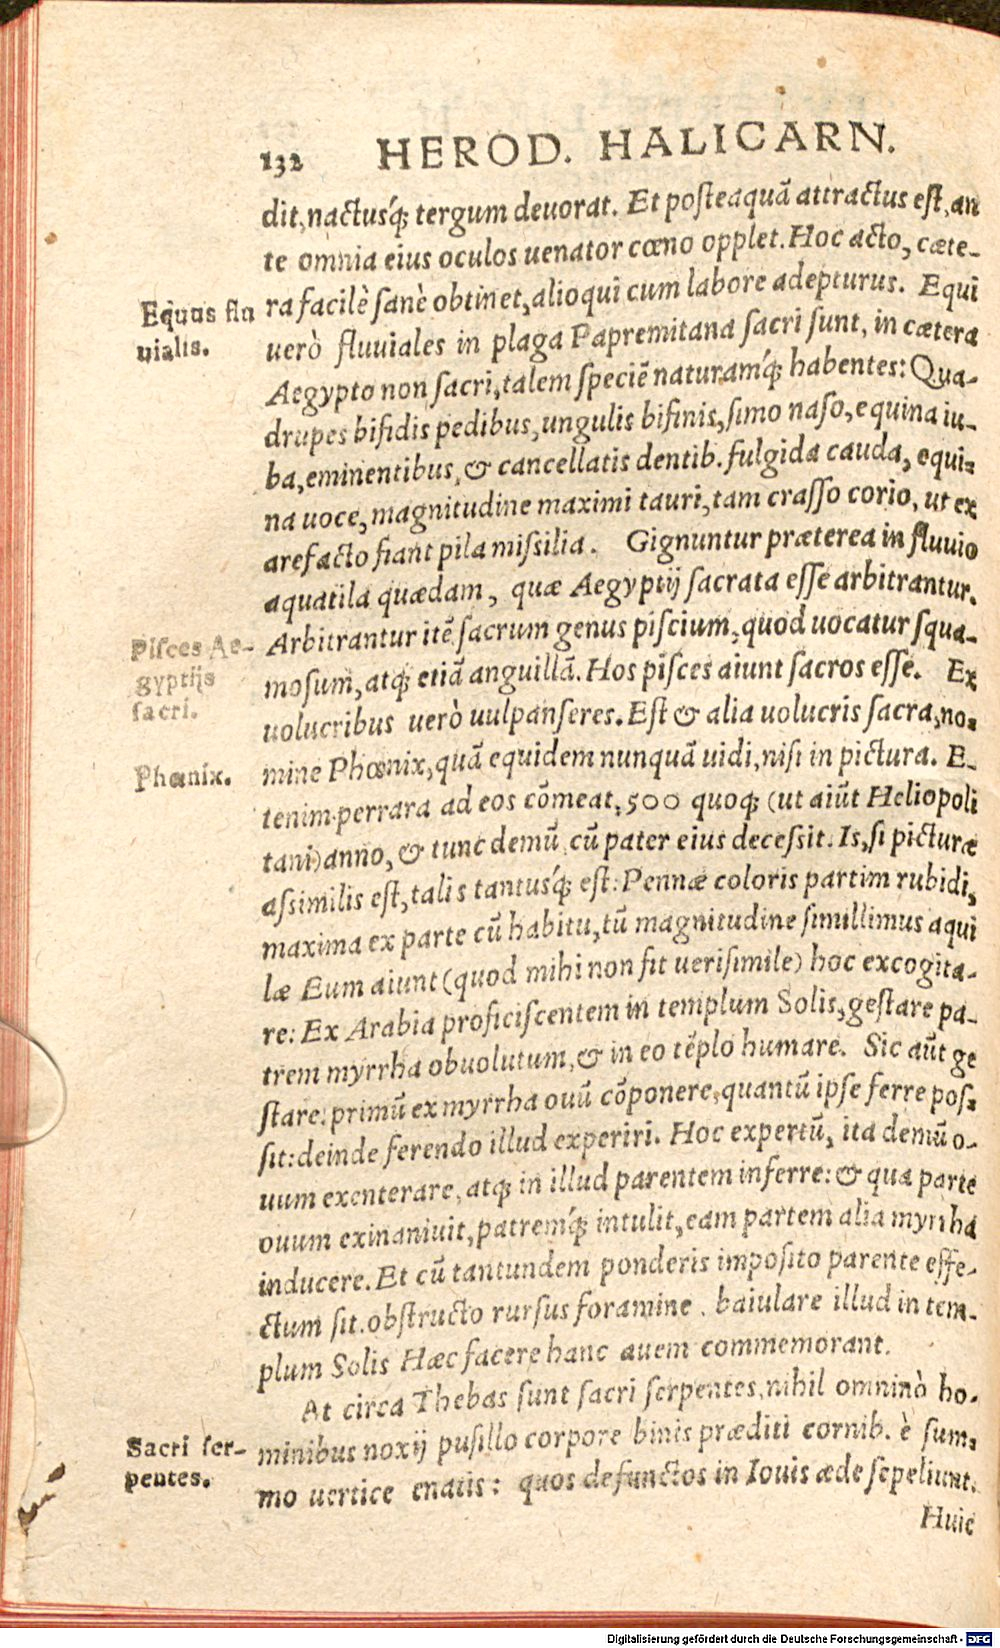 132 HEROD. HALICARN.
dit, nactusq́; tergum deuorat. Et posteaquã attractus est, an
te omnia eius oculos uenator cœno opplet. Hoc acto, cæte-
ra facilè sanè obtinet, alioqui cum labore adepturus. Equi
Equus flu
uialis.
uerò fluuiales in plaga Papremitana sacri sunt, in cætera
Aegypto non sacri, talem speciẽ naturamq́; habentes: Qua-
drupes bifidis pedibus, ungulis bifinis, simo naso, equina iu-
ba, eminentibus, & cancellatis dentib. fulgida cauda, equi-
na uoce, magnitudine maximi tauri, tam crasso corio, ut ex
arefacto fiant pila missilia. Gignuntur præterea in fluuio
aquatila quædam, quæ Aegyptij sacrata esse arbitrantur.
Arbitrantur itẽ sacrum genus piscium, quod uocatur squa-
Pisces Ae-
gyptijs
sacri.
mosum, atq; etiã anguillã. Hos pisces aiunt sacros esse. Ex
uolucribus uerò uulpanseres. Est & alia uolucris sacra, no-
mine Phœnix, quã equidem nunquã uidi, nisi in pictura. E-
Phœnix.
tenim perrara ad eos cõmeat, 500 quoq; (ut aiũt Heliopoli
tani) anno, & tunc demũ cũ pater eius decessit. Is, si picturæ
assimilis est, talis tantusq́; est: Pennæ coloris partim rubidi,
maxima ex parte cũ habitu, tũ magnitudine simillimus aqui
læ Eum aiunt (quod mihi non fit uerisimile) hoc excogita-
re: Ex Arabia proficiscentem in templum Solis, gestare pa-
trem myrrha obuolutum, & in eo tẽplo humare. Sic aũt ge
stare: primũ ex myrrha ouũ cõponere, quantũ ipse ferre pos-
sit: deinde ferendo illud experiri. Hoc expertũ, ita demũ o-
uum exenterare, atq; in illud parentem inferre: & qua parte
ouum exinaniuit, patremq́; intulit, eam partem alia myrrha
inducere. Et cũ tantundem ponderis imposito parente effe-
ctum sit, obstructo rursus foramine, baiulare illud in tem-
plum Solis Hæc facere hanc auem commemorant.
At circa Thebas sunt sacri serpentes, nihil omninò ho-
Sacri ser-
pentes.
minibus noxij pusillo corpore binis præditi cornib. è sum-
mo uertice enatis: quos defunctos in Iouis æde sepeliunt.
Huic
Digitalisierung gefördert durch die Deutsche Forschungsgemeinschaft - DFG